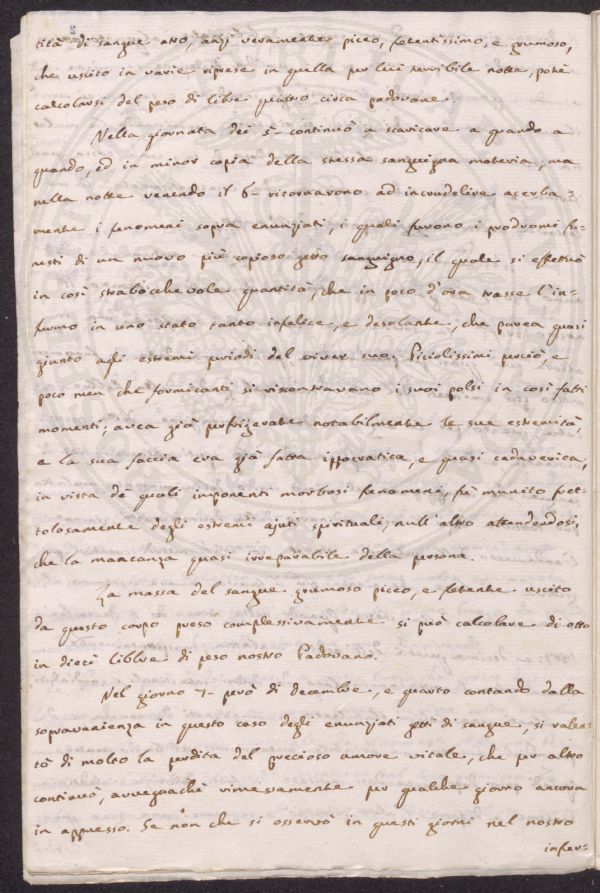 tità di sangue atro, anzi veramente piceo, fetentissimo, e grumoso,
che uscito in varie riprese in quella per lui terribile notte, potè
calcolarsi del peso di libre quattro circa padovane.
Nella giornata dei 5 continuò a scaricare a quando a
quando, ed in minor copia della stessa sanguigna materia; ma
nella notte venendo il 6 ritornarono ad incrudelire acerba-
mente i fenomeni sopra enunziati, i quali furono i prodromi fu-
nesti di un nuovo più copioso getto sanguigno, il quale si effettuò
in così strabocchevole quantità, che in poco d'ora trasse l'in-
fermo in uno stato tanto infelice, e desolante, che parea quasi
giunto agli estremi periodi del viver suo. Picciolissimi perciò, e
poco men che formicanti si riscontravano i suoi polsi in così fatti
momenti; avea già perfrigerate notabilmente le sue estremità,
e la sua faccia era già fatta ippocratica, e quasi cadaverica,
in vista de quali imponenti morbosi fenomeni, fù munito fret-
tolosamente degli estremi ajuti spirituali, null'altro attendendosi,
che la mancanza quasi irreparabile della persona.
La massa del sangue grumoso piceo, e fetente uscito
da questo corpo preso complessivamente si può calcolare di otto
in dieci libbre di peso nostro Padovano.
Nel giorno 7 però di decembre, e quarto contando dalla
sopravenienza in questo caso degli enunziati getti di sangue, si rallen-
tò di molto la perdita del precioso umore vitale, che per altro
continuò, avvegnachè rimessamente per qualche giorno ancora
in appresso. Se non che si osservò in questi giorni nel nostro
infer-